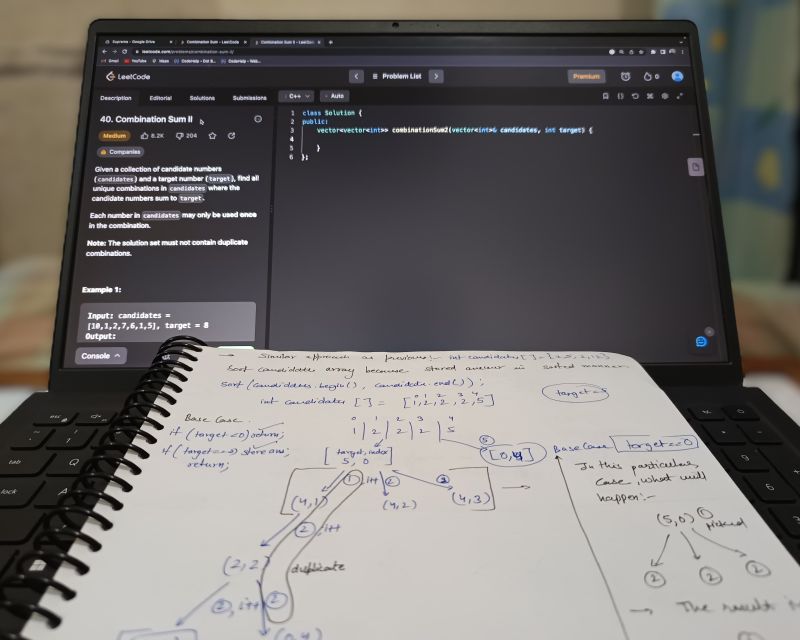 Supreme - Google Drive
Combination Sum - LeetCode
Combination Sum II - LeetCode
leetcode.com/problems/combination-sum-ii/
Gmail
YouTube
Maps
CodeHelp - Dot B...
CodeHelp - Web...
LeetCode
Problem List
Premium
0
Description
Editorial
Solutions
Submissions
C++
Auto
40. Combination Sum II
Medium
8.2K
204
Companies
Given a collection of candidate numbers
(candidates) and a target number (target), find all
unique combinations in candidates where the
candidate numbers sum to target.
Each number in candidates may only be used once
in the combination.
Note: The solution set must not contain duplicate
combinations.
Example 1:
Input: candidates =
[10,1,2,7,6,1,5], target = 8
Output:
Console
1 class Solution {
2 public:
3 vector<vector<int>> combinationSum2(vector<int>& candidates, int target) {
4
5 }
6 };
→ Similar approach as previous:- int candidates[] =
Sort candidate array because stored answer in sorted manner.
sort(candidates.begin(), candidate.end());
target=5
0 1 2 3 4
int candidates [] = [1,2,2,2,5]
Base Case.
if (target<0) return;
if (target==0) store ans,
return;
0 1 2 3 4
1 | 2 | 2 | 2 | 5
[target, index]
5, 0
5
Base Case target==0
1 i++ 2 2
(4,1) (4,2) (4,3) →
2, i++
(2,2)
duplicate
2, i++ 2
(0,4)
In this particular
case, what will
happen:-
(5,0) 1 Picked
2 2 2
→ The result